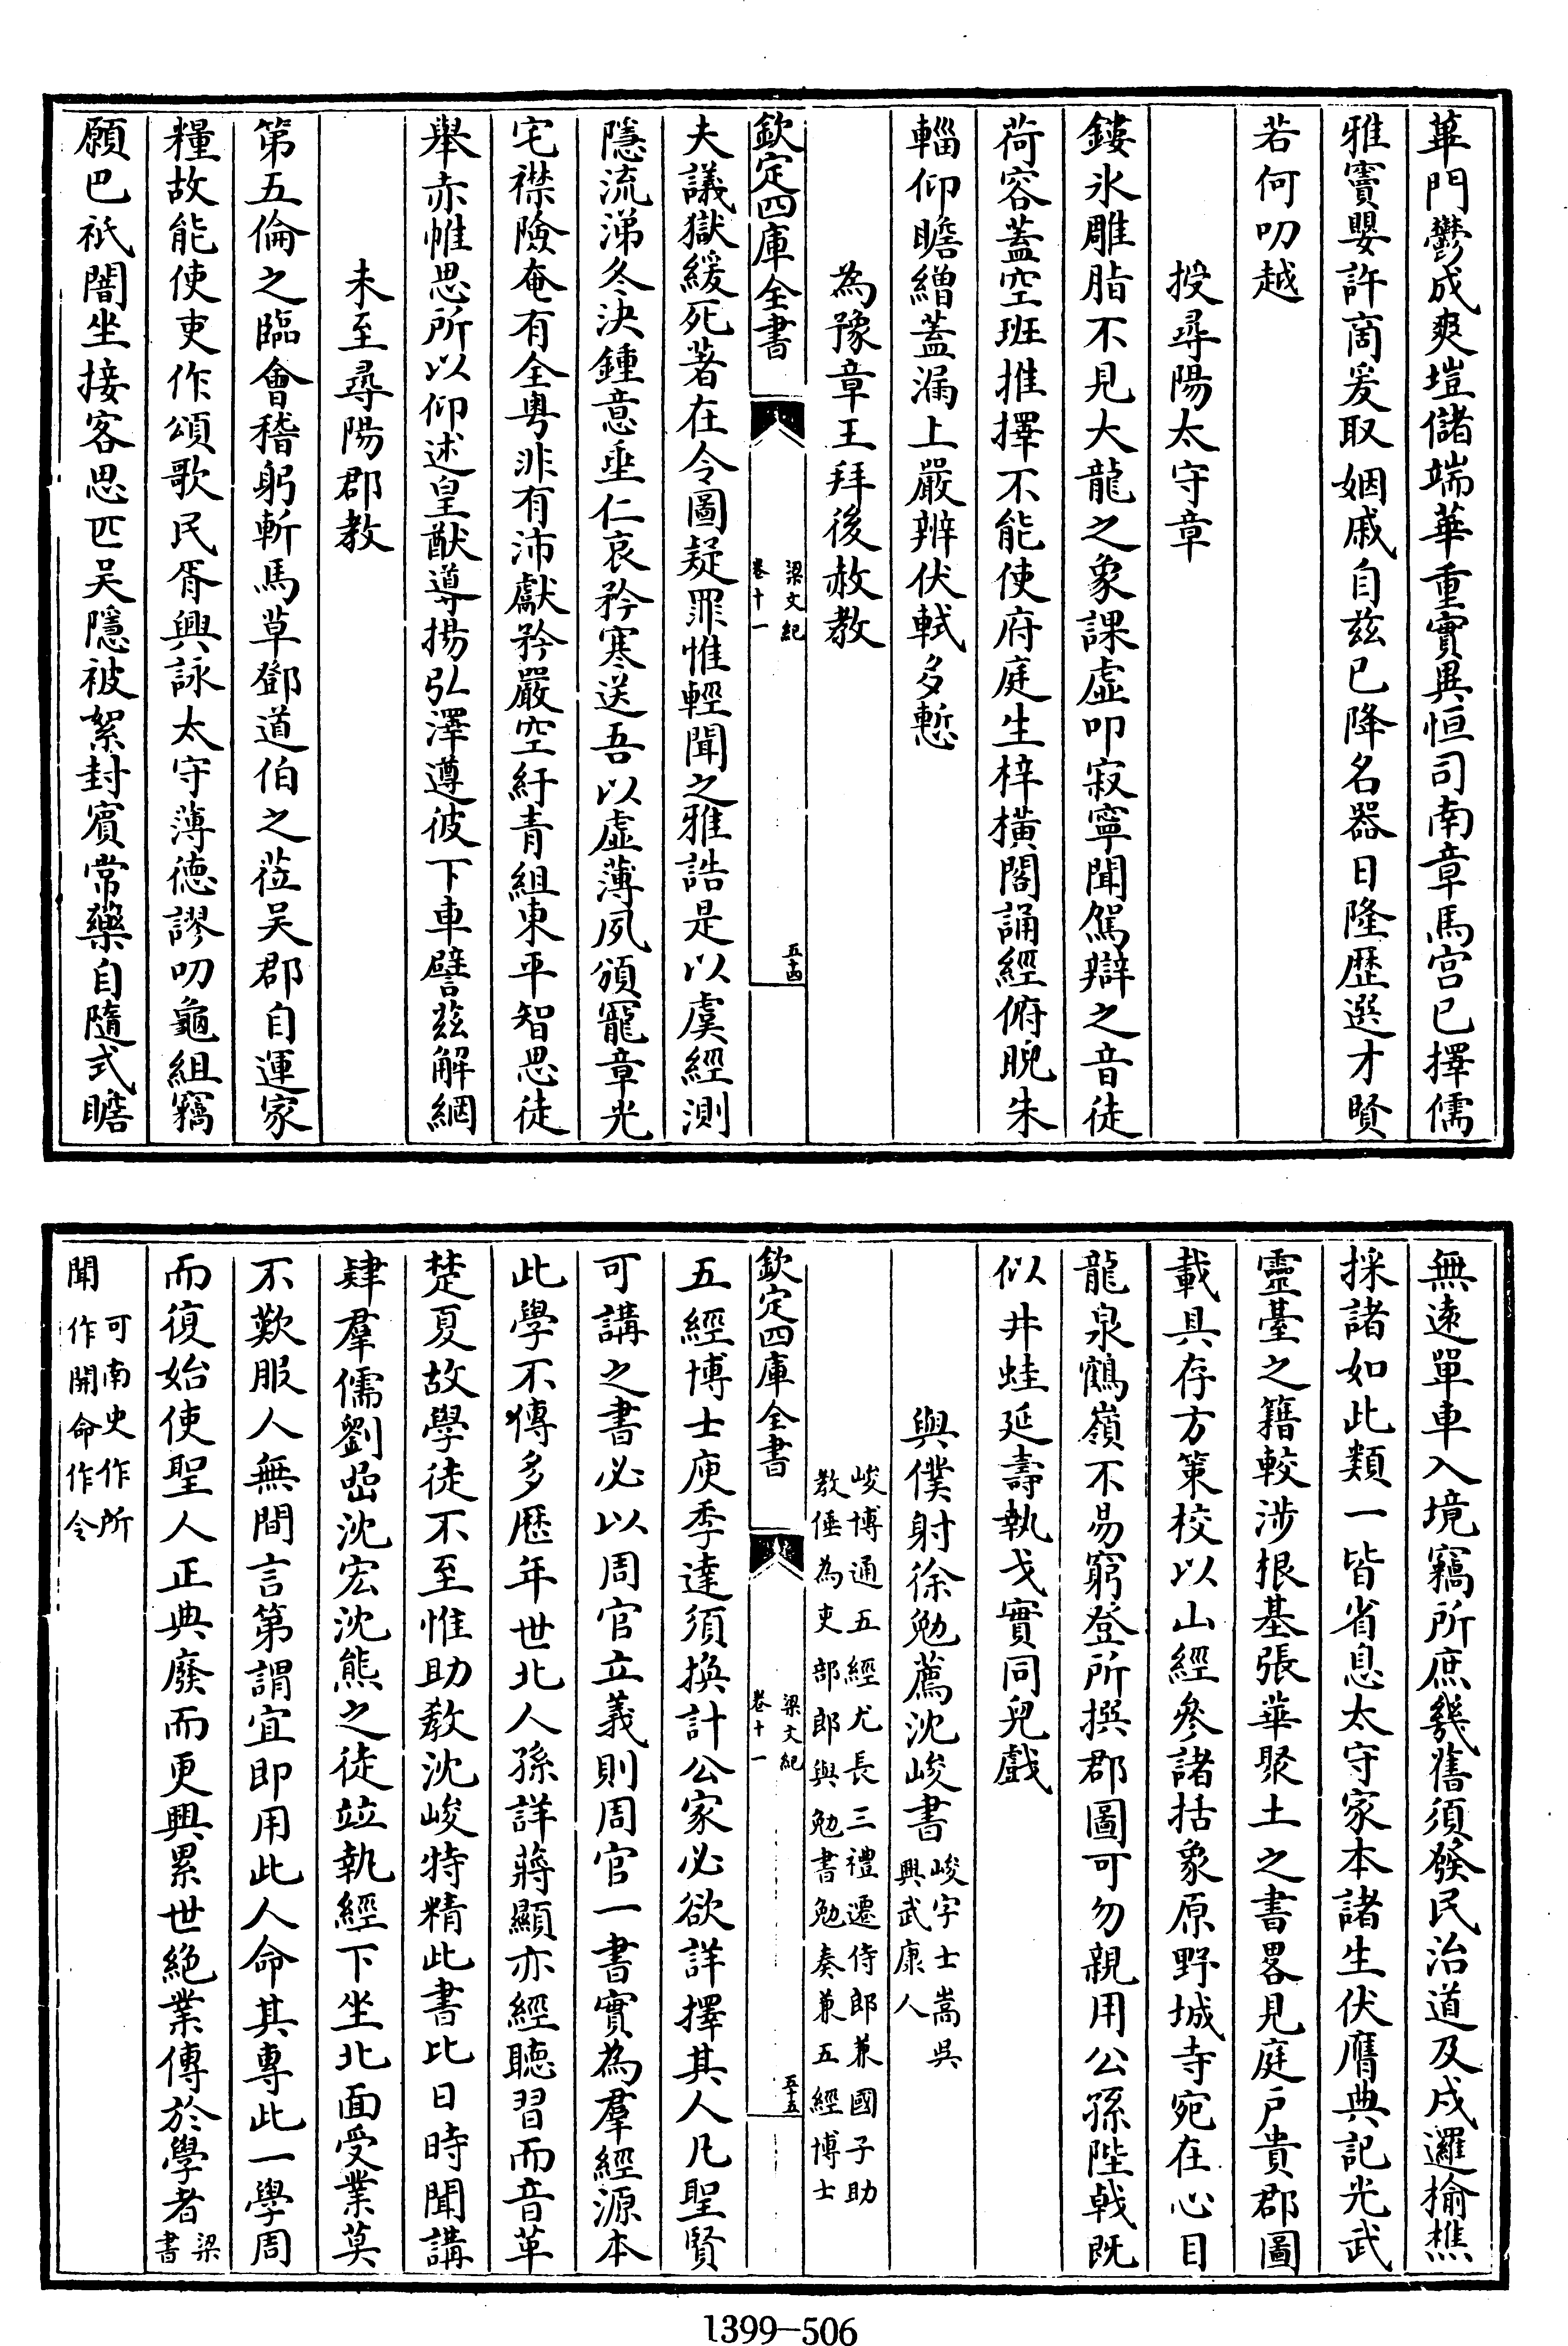 蓽門鬱成爽塏儲端華重實異恒司南章馬宫已擇儒
雅竇嬰許商爰取姻戚自兹已降名器日隆歴選才賢
若何叨越
授尋陽太守章
鏤氷雕脂不見大龍之象課虚叩寂寧聞駕辯之音徒
荷容蓋空班推擇不能使府庭生梓横閣誦經俯睨朱
輜仰瞻繒蓋漏上嚴辨伏軾多慙
為豫章王拜後赦教
欽定四庫全書
梁文紀
卷十一
五十四
夫議獄緩死著在令圖疑罪惟輕聞之雅誥是以虞經測
隱流涕冬決鍾意垂仁哀矜寒送吾以虚薄夙頒寵章光
宅襟險奄有全粤非有沛獻矜嚴空紆青組東平智思徒
舉赤帷思所以仰述皇猷導揚弘澤遵彼下車譬兹解網
未至尋陽郡教
第五倫之臨會稽躬斬馬草鄧道伯之蒞吳郡自運家
糧故能使吏作頌歌民胥興詠太守薄德謬叨龜組竊
願巴祇闇坐接客思匹吳隱被絮封賔常藥自隨式瞻
無遠單車入境竊所庶幾舊須發民治道及戍邏揄樵
採諸如此類一皆省息太守家本諸生伏膺典記光武
靈臺之籍較涉根基張華聚土之書畧見庭户貴郡圖
載具存方策校以山經參諸括象原野城寺宛在心目
龍泉鶴嶺不易窮登所撰郡圖可勿親用公孫陛戟既
似井蛙延壽執戈實同兒戲
與僕射徐勉薦沈峻書
峻字士嵩吳
興武康人
峻博通五經尤長三禮遷侍郎兼國子助
教倕為吏部郎與勉書勉奏兼五經博士
欽定四庫全書
梁文紀
卷十一
五十五
五經博士庾季達須換計公家必欲詳擇其人凡聖賢
可講之書必以周官立義則周官一書實為羣經源本
此學不傳多歴年世北人孫詳蔣顯亦經聽習而音革
楚夏故學徒不至惟助教沈峻特精此書比日時聞講
肄羣儒劉嵒沈宏沈熊之徒竝執經下坐北面受業莫
不歎服人無間言第謂宜即用此人命其專此一學周
而復始使聖人正典廢而更興累世絶業傳於學者
梁
書
聞
可南史作所
作開命作令
1399-506